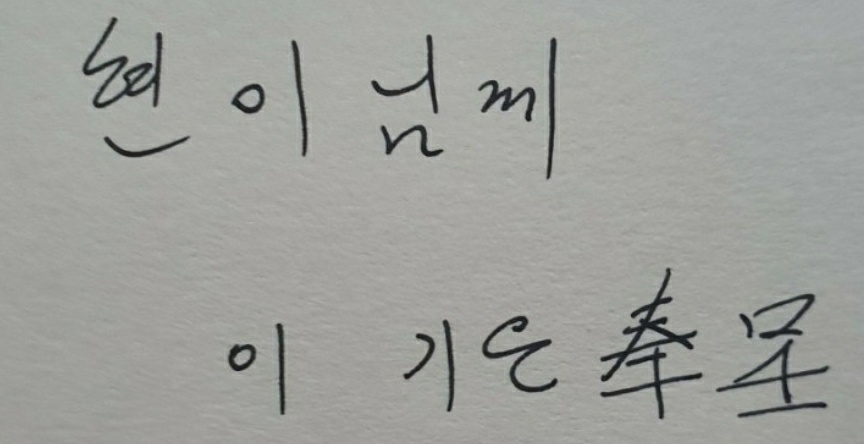 현이님께
이 기은 奉呈